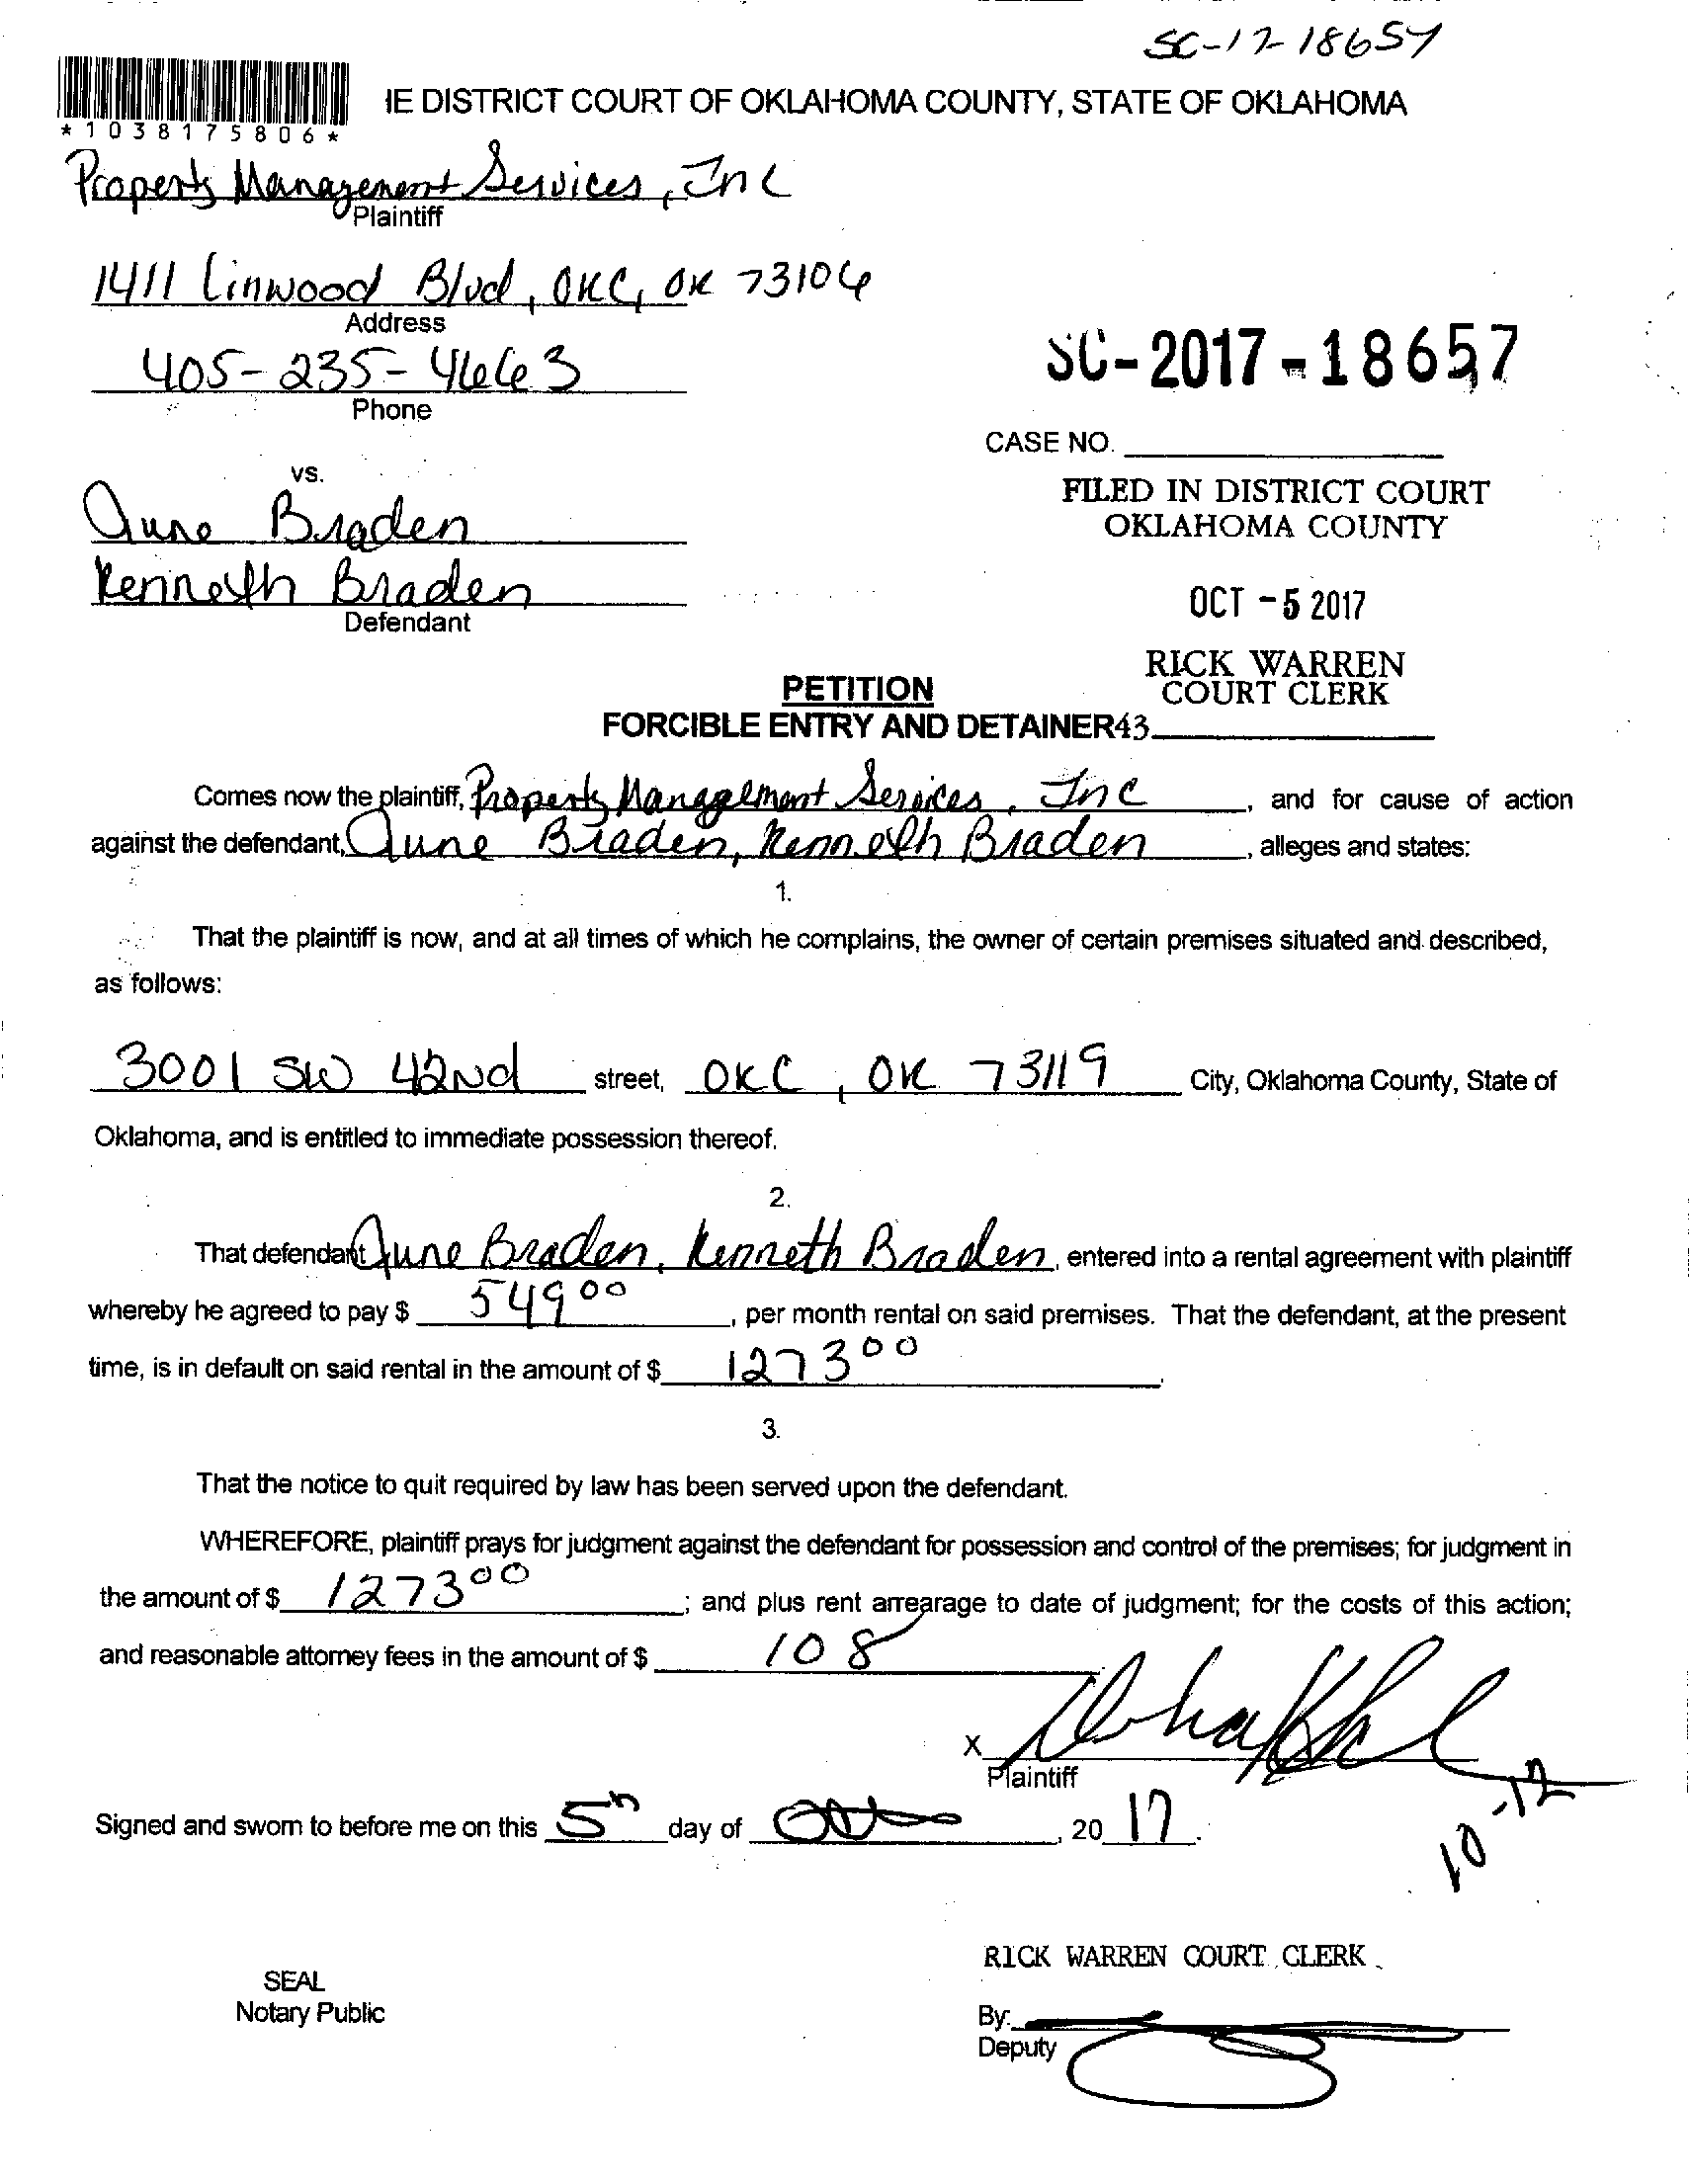 SC-17-18657
IE DISTRICT COURT OF OKLAHOMA COUNTY, STATE OF OKLAHOMA
*1038175806*
Property Management Services, Inc
Plaintiff
1411 Linwood Blvd, OKC, OK 73106
Address
405-235-4663
Phone
SC-2017-18657
CASE NO.
vs.
FILED IN DISTRICT COURT
OKLAHOMA COUNTY
June Braden
Kenneth Braden
Defendant
OCT -5 2017
RICK WARREN
COURT CLERK
PETITION
FORCIBLE ENTRY AND DETAINER43.
Comes now the plaintiff, Property Management Services, Inc, and for cause of action
against the defendant, June Braden, Kenneth Braden, alleges and states:
1.
That the plaintiff is now, and at all times of which he complains, the owner of certain premises situated and described,
as follows:
3001 SW 42nd street, OKC, OK 73119 City, Oklahoma County, State of
Oklahoma, and is entitled to immediate possession thereof.
2.
That defendant June Braden, Kenneth Braden, entered into a rental agreement with plaintiff
whereby he agreed to pay $ 549 00, per month rental on said premises. That the defendant, at the present
time, is in default on said rental in the amount of $ 1273 00.
3.
That the notice to quit required by law has been served upon the defendant.
WHEREFORE, plaintiff prays for judgment against the defendant for possession and control of the premises; for judgment in
the amount of $ 1273 00; and plus rent arrearage to date of judgment; for the costs of this action;
and reasonable attorney fees in the amount of $ 108
X
Plaintiff
Signed and sworn to before me on this 5th day of Oct, 20 17.
10-17
RICK WARREN COURT CLERK
SEAL
Notary Public
By:
Deputy